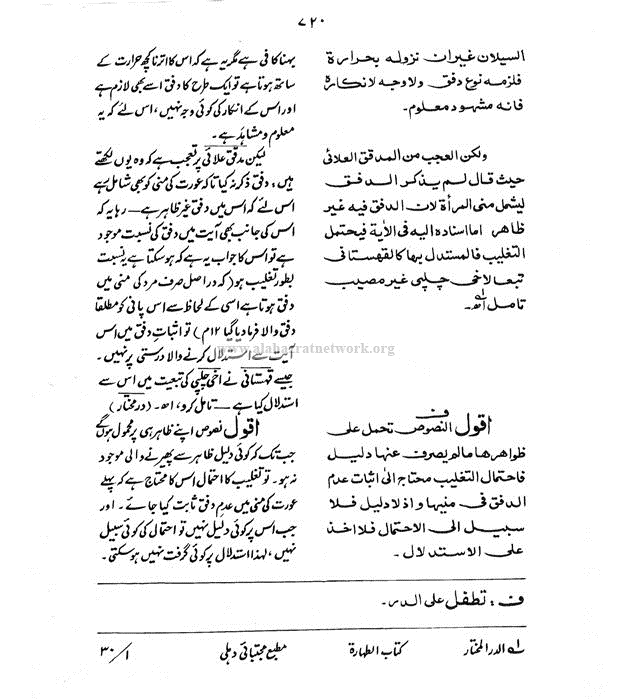 ۷۲۰
السيلان غيران نزوله بحرارة
فلزمه نوع دفق ولاوجه لانكاره
فانه مشهود معلوم۔
ولكن العجب من المدقق العلائی
حيث قال لم يذكر الدفق
ليشمل منی المرأة لان الدفق فيه غير
ظاهر اما اسناده اليه فی الأية فيحتمل
التغليب فالمستدل بها كالقهستانی
تبعا لاخی چلپی غير مصيب
تامل اھ۔
ف
اقول النصوص تحمل علی
ظواهرها مالم يصرف عنها دليل
فاحتمال التغليب محتاج الی اثبات عدم
الدفق فی منيها واذ لادليل فلا
سبيل الی الاحتمال فلا اخذ
علی الاستدلال۔
بہنا کافی ہے مگر یہ ہے کہ اس کا اترنا کچھ حرارت کے
ساتھ ہوتا ہے تو ایک طرح کا دفق اسے بھی لازم ہے
اور اس کے انکار کی کوئی وجہ نہیں، اس لئے کہ یہ
معلوم و مشاہَد ہے۔
لیکن مدقق علائی پر تعجب ہے کہ وہ یوں لکھتے
ہیں، دفق ذکر نہ کیا تاکہ عورت کی منی کو بھی شامل رہے
اس لئے کہ اس میں دفق غیر ظاہر ہے — رہا یہ کہ
اس کی جانب بھی آیت میں دفق کی نسبت موجود
ہے تو اس کا جواب یہ ہے کہ ہوسکتا ہے یہ نسبت
بطور تغلیب ہو (کہ دراصل صرف مرد کی منی میں
دفق ہوتا ہے اسی کے لحاظ سے اس پانی کو مطلقا
دفق والا فرما دیا گیا ۱۲م) تو اثباتِ دفق میں اس
آیت سے استدلال کرنے والا درستی پر نہیں۔
جیسے قہستانی نے اخی چلپی کی تبعیت میں اس سے
استدلال کیا ہے — تامل کرو، اھ۔ (درمختار)
اقول نصوص اپنے ظاہر ہی پر محمول ہوں گے
جب تک کہ کوئی دلیل ظاہر سے پھیرنے والی موجود
نہ ہو۔ تو تغلیب کا احتمال اس کا محتاج ہے کہ پہلے
عورت کی منی میں عدمِ دفق ثابت کیا جائے۔ اور
جب اس پر کوئی دلیل نہیں تو احتمال کی کوئی سبیل
نہیں، لہذا استدلال پر کوئی گرفت نہیں ہوسکتی۔
www.alahazratnetwork.org
ف : تطفل علی الدر۔
لہ الدر المختار کتاب الطہارة مطبع مجتبائی دہلی ۱/۳۰